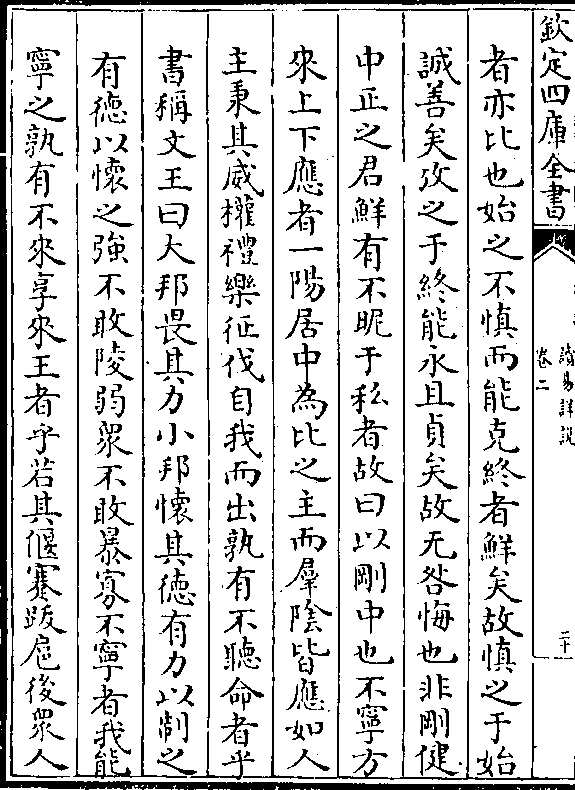 欽定四庫全書
讀易詳説
卷二
二十
者亦比也始之不慎而能克終者鮮矣故慎之于始
誠善矣攷之于終能永且貞矣故无咎悔也非剛健
中正之君鮮有不昵于私者故曰以剛中也不寧方
來上下應者一陽居中為比之主而羣陰皆應如人
主秉其威權禮樂征伐自我而出孰有不聽命者乎
書稱文王曰大邦畏其力小邦懐其徳有力以制之
有徳以懐之強不敢陵弱衆不敢暴寡不寧者我能
寧之孰有不來享來王者乎若其偃蹇跋扈後衆人